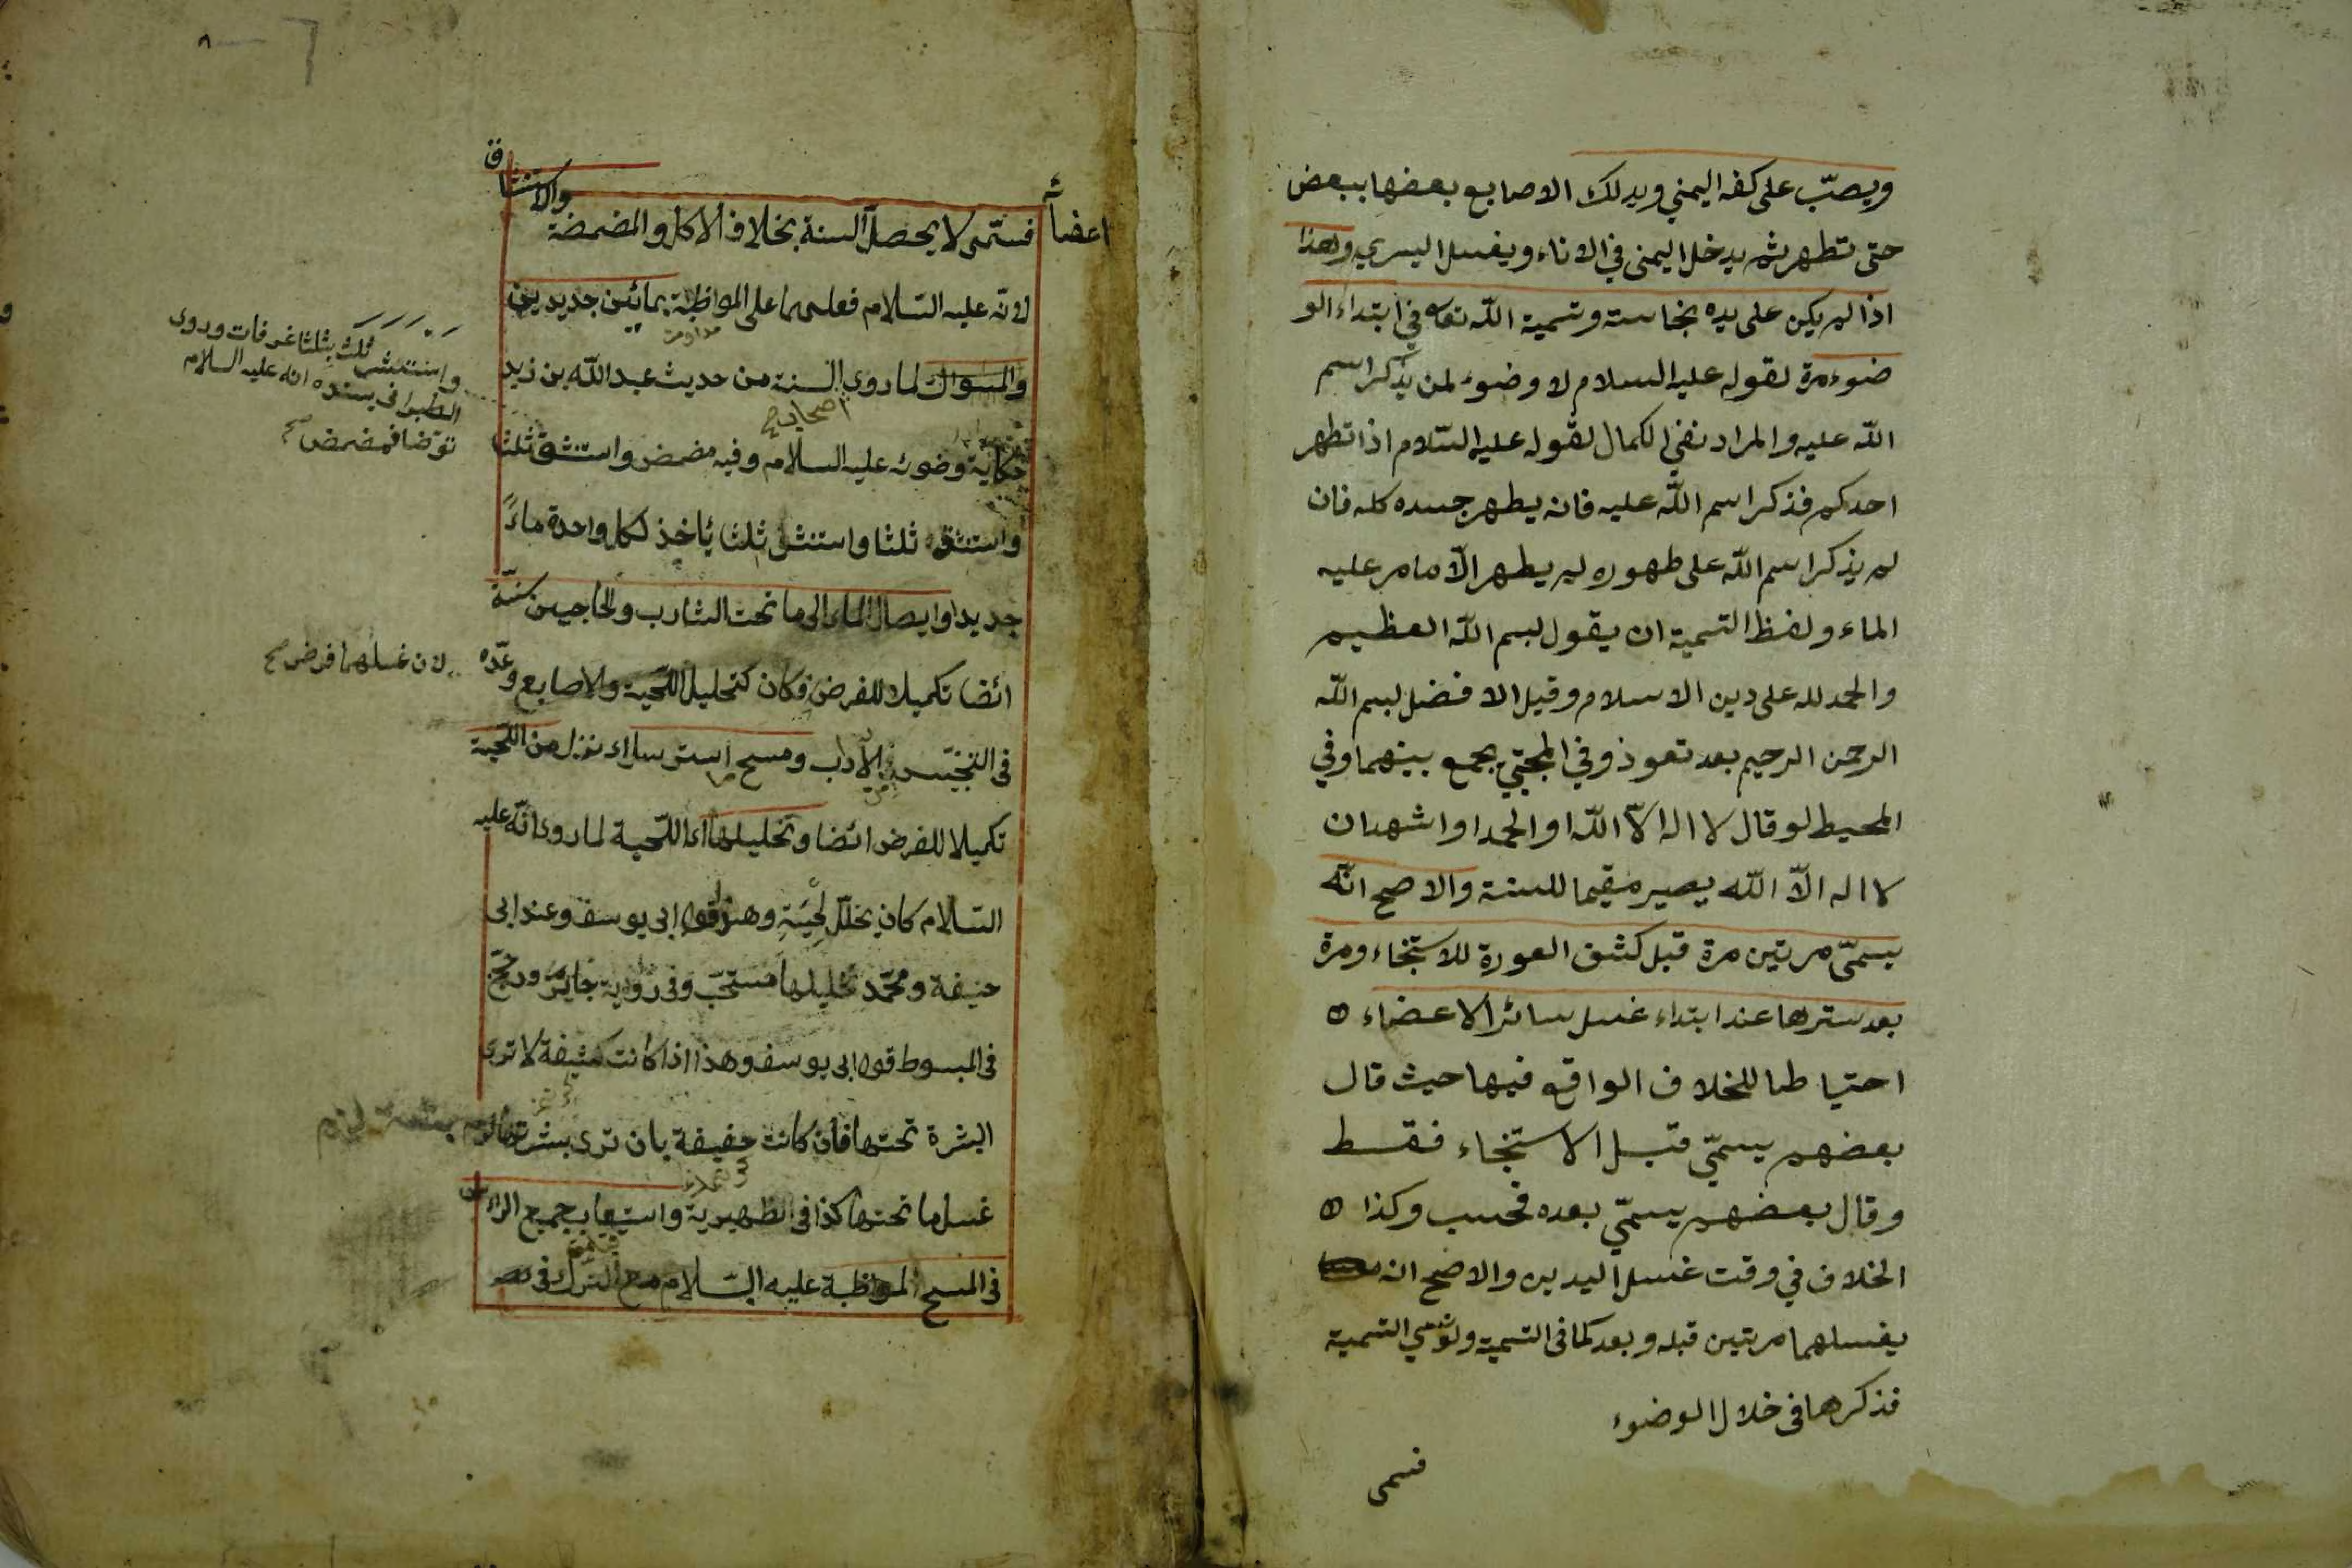 ويصبّ على كفه اليمني ويدلك الاصابع بعضها ببعض
حتى تطهر ثم يدخل اليمنى في الاناء ويغسل اليسري وهذا
اذا لم يكن على يده نجاسة وتسمية الله تعا في ابتداء الو
ضوء مرة لقوله عليه السلام لا وضوء لمن يذكر اسم
الله عليه والمراد نفي الكمال لقوله عليه السّلام اذا تطهر
احدكم فذكر اسم الله عليه فانه يطهر جسده كله فان
لم يذكر اسم الله على طهوره لم يطهر الّا ما مر عليه
الماء ولفظ التسمية ان يقول بسم الله العظيم
والحمد لله على دين الاسلام وقيل الافضل بسم الله
الرحمن الرحيم بعد تعوذ وفي المجتبي يجمع بينهما وفي
المحيط لو قال لا اله الّا الله او الحمد او اشهد ان
لا اله الّا الله يصير مقيما للسنة والاصح انّه
يسمّي مرتين مرة قبل كشف العورة للاستنجاء ومرة
بعد سترها عند ابتداء غسل سائر الاعضاء ٥
احتياطا للخلاف الواقع فيها حيث قال
بعضهم يسمّي قبل الاستنجاء فقط
وقال بعضهم يسمّي بعده فحسب وكذا ٥
الخلاف في وقت غسل اليدين والاصح انه
يغسلهما مرتين قبله وبعد كما في التسمية ولو نسي التسمية
فذكرها في خلال الوضوء
فسمى
٨
والاستنشاق
اعضائه
فسمّى لا يحصل السنة بخلاف الاكل والمضمضة
لانّه عليه السّلام فعلهما على المواظبة بمائين جديدين
مداومت
والسواك لما روى الستة من حديث عبد الله بن زيد
اصحاب
حكاية وضوئه عليه السلام وفيه مضمض واستنشق ثلثا
واستنشق ثلثا واستنشر ثلثا يأخذ لكل واحدة ماءً
جديدا وايصال الماء الى ما تحت الشارب والحاجبين سنّة
ائضا تكميلا للفرض فكان كتخليل اللّحية والاصابع وعدّه
في التجنيس من الآداب ومسح ما استرسل اى نزل من اللّحية
تكميلا للفرض ائضا وتخليلها اى اللّحية لما روى انّه عليه
السّلام كان يخلّل لحيته وهذا قول ابى يوسف وعند ابى
حنيفة ومحمّد تخليلها مستحبّ وفى رواية جايز ورجّح
فى المبسوط قول ابى يوسف وهذا اذا كانت كثيفة لا ترى
البشرة تحتها فان كانت خفيفة بان ترى بشرتها
غسل ما تحتها كذا فى الظهيرية واستيعاب جميع الرأس
فى المسح لمواظبة عليه السّلام مع الترك فى
واستنشر ثلث بثلثا غرفات وروى
الطبرانى بسنده انه عليه السلام
توضا فمضمض صح
لان غسلهما فرض صح